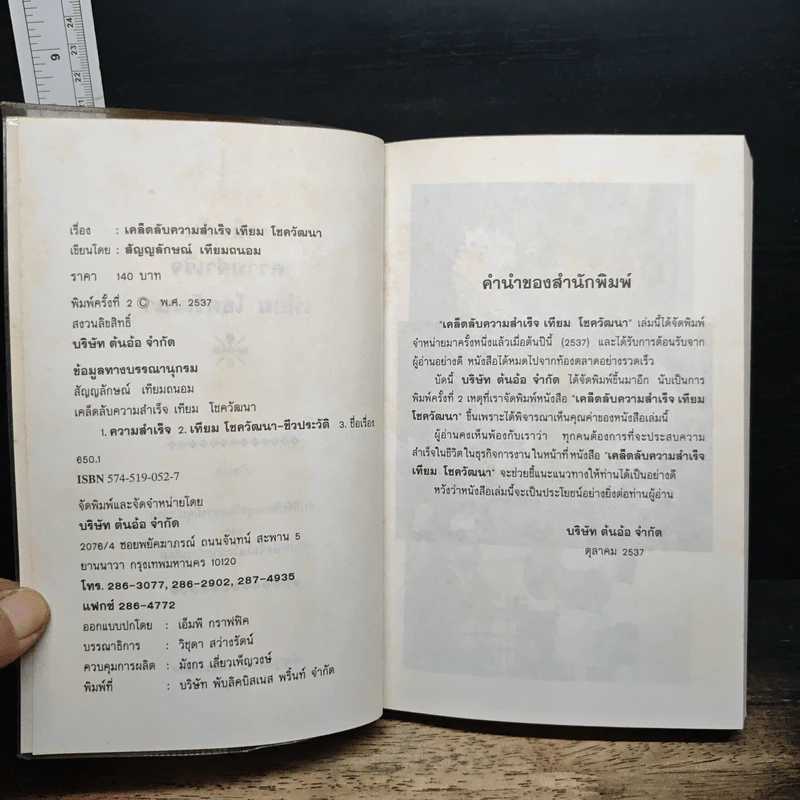 เรื่อง : เคล็ดลับความสำเร็จ เทียม โชควัฒนา
เขียนโดย : สัญญลักษณ์ เทียมถนอม
ราคา 140 บาท
พิมพ์ครั้งที่ 2 © พ.ศ. 2537
สงวนลิขสิทธิ์
บริษัท ต้นอ้อ จำกัด
ข้อมูลทางบรรณานุกรม
สัญญลักษณ์ เทียมถนอม
เคล็ดลับความสำเร็จ เทียม โชควัฒนา
1. ความสำเร็จ 2. เทียม โชควัฒนา-ชีวประวัติ 3. ชื่อเรื่อง
650.1
ISBN 574-519-052-7
จัดพิมพ์และจัดจำหน่ายโดย
บริษัท ต้นอ้อ จำกัด
2076/4 ซอยพยัคฆาภรณ์ ถนนจันทน์ สะพาน 5
ยานนาวา กรุงเทพมหานคร 10120
โทร. 286-3077, 286-2902, 287-4935
แฟกซ์ 286-4772
ออกแบบปกโดย : เอ็มพี กราฟฟิค
บรรณาธิการ : วิชุดา สว่างรัตน์
ควบคุมการผลิต : มังกร เลี่ยวเพ็ญวงษ์
พิมพ์ที่ : บริษัท พับลิคบิสเนส พริ้นท์ จำกัด
คำนำของสำนักพิมพ์
"เคล็ดลับความสำเร็จ เทียม โชควัฒนา" เล่มนี้ได้จัดพิมพ์
จำหน่ายมาครั้งหนึ่งแล้วเมื่อต้นปีนี้ (2537) และได้รับการต้อนรับจาก
ผู้อ่านอย่างดี หนังสือได้หมดไปจากท้องตลาดอย่างรวดเร็ว
บัดนี้ บริษัท ต้นอ้อ จำกัด ได้จัดพิมพ์ขึ้นมาอีก นับเป็นการ
พิมพ์ครั้งที่ 2 เหตุที่เราจัดพิมพ์หนังสือ "เคล็ดลับความสำเร็จ เทียม
โชควัฒนา" ขึ้นเพราะได้พิจารณาเห็นคุณค่าของหนังสือเล่มนี้
ผู้อ่านคงเห็นพ้องกับเราว่า ทุกคนต้องการที่จะประสบความ
สำเร็จในชีวิต ในธุรกิจการงาน ในหน้าที่หนังสือ "เคล็ดลับความสำเร็จ
เทียม โชควัฒนา" จะช่วยชี้แนะแนวทางให้ท่านได้เป็นอย่างดี
หวังว่าหนังสือเล่มนี้จะเป็นประโยชน์อย่างยิ่งต่อท่านผู้อ่าน
บริษัท ต้นอ้อ จำกัด
ตุลาคม 2537